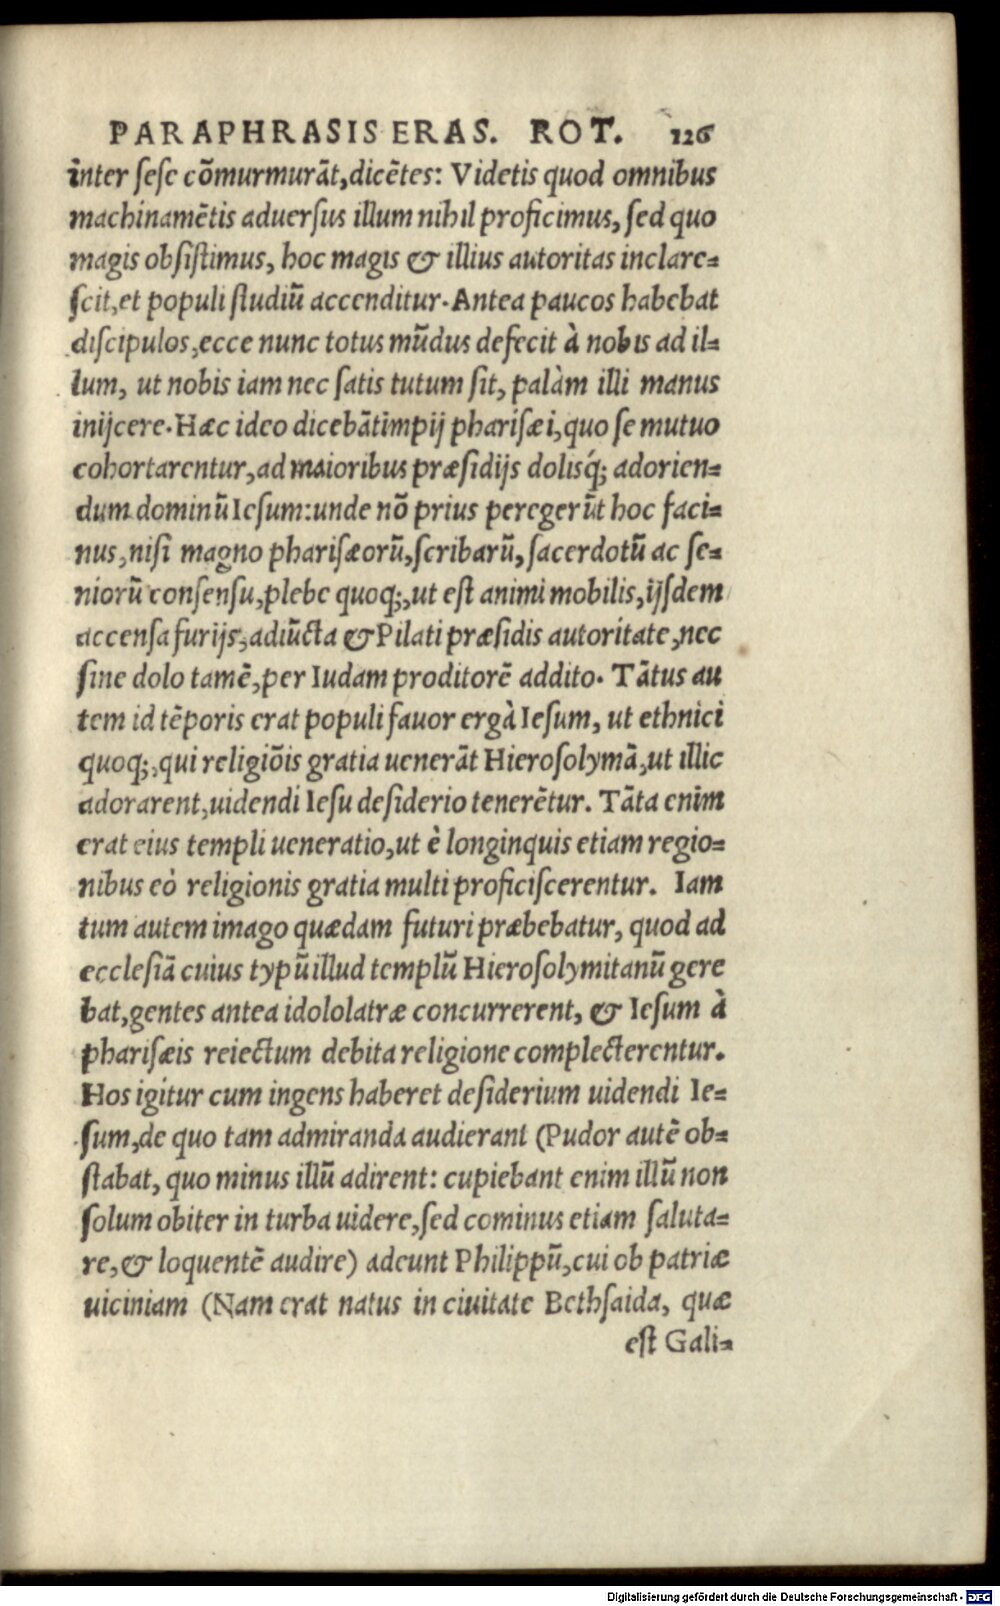 PARAPHRASIS ERAS. ROT. 126
inter sese cōmurmurāt, dicētes: Videtis quod omnibus
machinamētis aduersus illum nihil proficimus, sed quo
magis obsistimus, hoc magis & illius autoritas inclare=
scit, et populi studiū accenditur. Antea paucos habebat
discipulos, ecce nunc totus mūdus defecit à nobis ad il=
lum, ut nobis iam nec satis tutum sit, palàm illi manus
inijcere. Hæc ideo dicebāt impij pharisæi, quo se mutuo
cohortarentur, ad maioribus præsidijs dolisq́; adorien=
dum dominū Iesum: unde nō prius peregerūt hoc faci=
nus, nisi magno pharisæorū, scribarū, sacerdotū ac se=
niorū consensu, plebe quoq;, ut est animi mobilis, ijsdem
accensa furijs, adiūcta & Pilati præsidis autoritate, nec
sine dolo tamē, per Iudam proditorē addito. Tātus au
tem id tēporis erat populi fauor ergà Iesum, ut ethnici
quoq;, qui religiōis gratia uenerāt Hierosolymā, ut illic
adorarent, uidendi Iesu desiderio tenerētur. Tāta enim
erat eius templi ueneratio, ut è longinquis etiam regio=
nibus eò religionis gratia multi proficiscerentur. Iam
tum autem imago quædam futuri præbebatur, quod ad
ecclesiā cuius typū illud templū Hierosolymitanū gere
bat, gentes antea idololatræ concurrerent, & Iesum à
pharisæis reiectum debita religione complecterentur.
Hos igitur cum ingens haberet desiderium uidendi Ie=
sum, de quo tam admiranda audierant (Pudor autē ob=
stabat, quo minus illū adirent: cupiebant enim illū non
solum obiter in turba uidere, sed cominus etiam saluta=
re, & loquentē audire) adeunt Philippū, cui ob patriæ
uiciniam (Nam erat natus in ciuitate Bethsaida, quæ
est Gali=
Digitalisierung gefördert durch die Deutsche Forschungsgemeinschaft - DFG